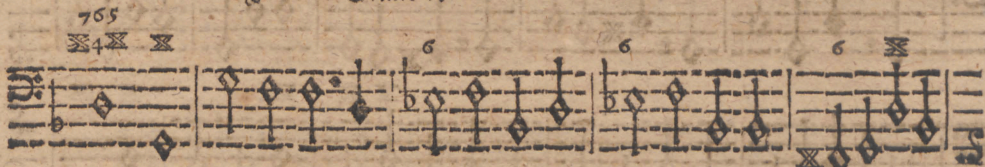 765
4
6 6 6